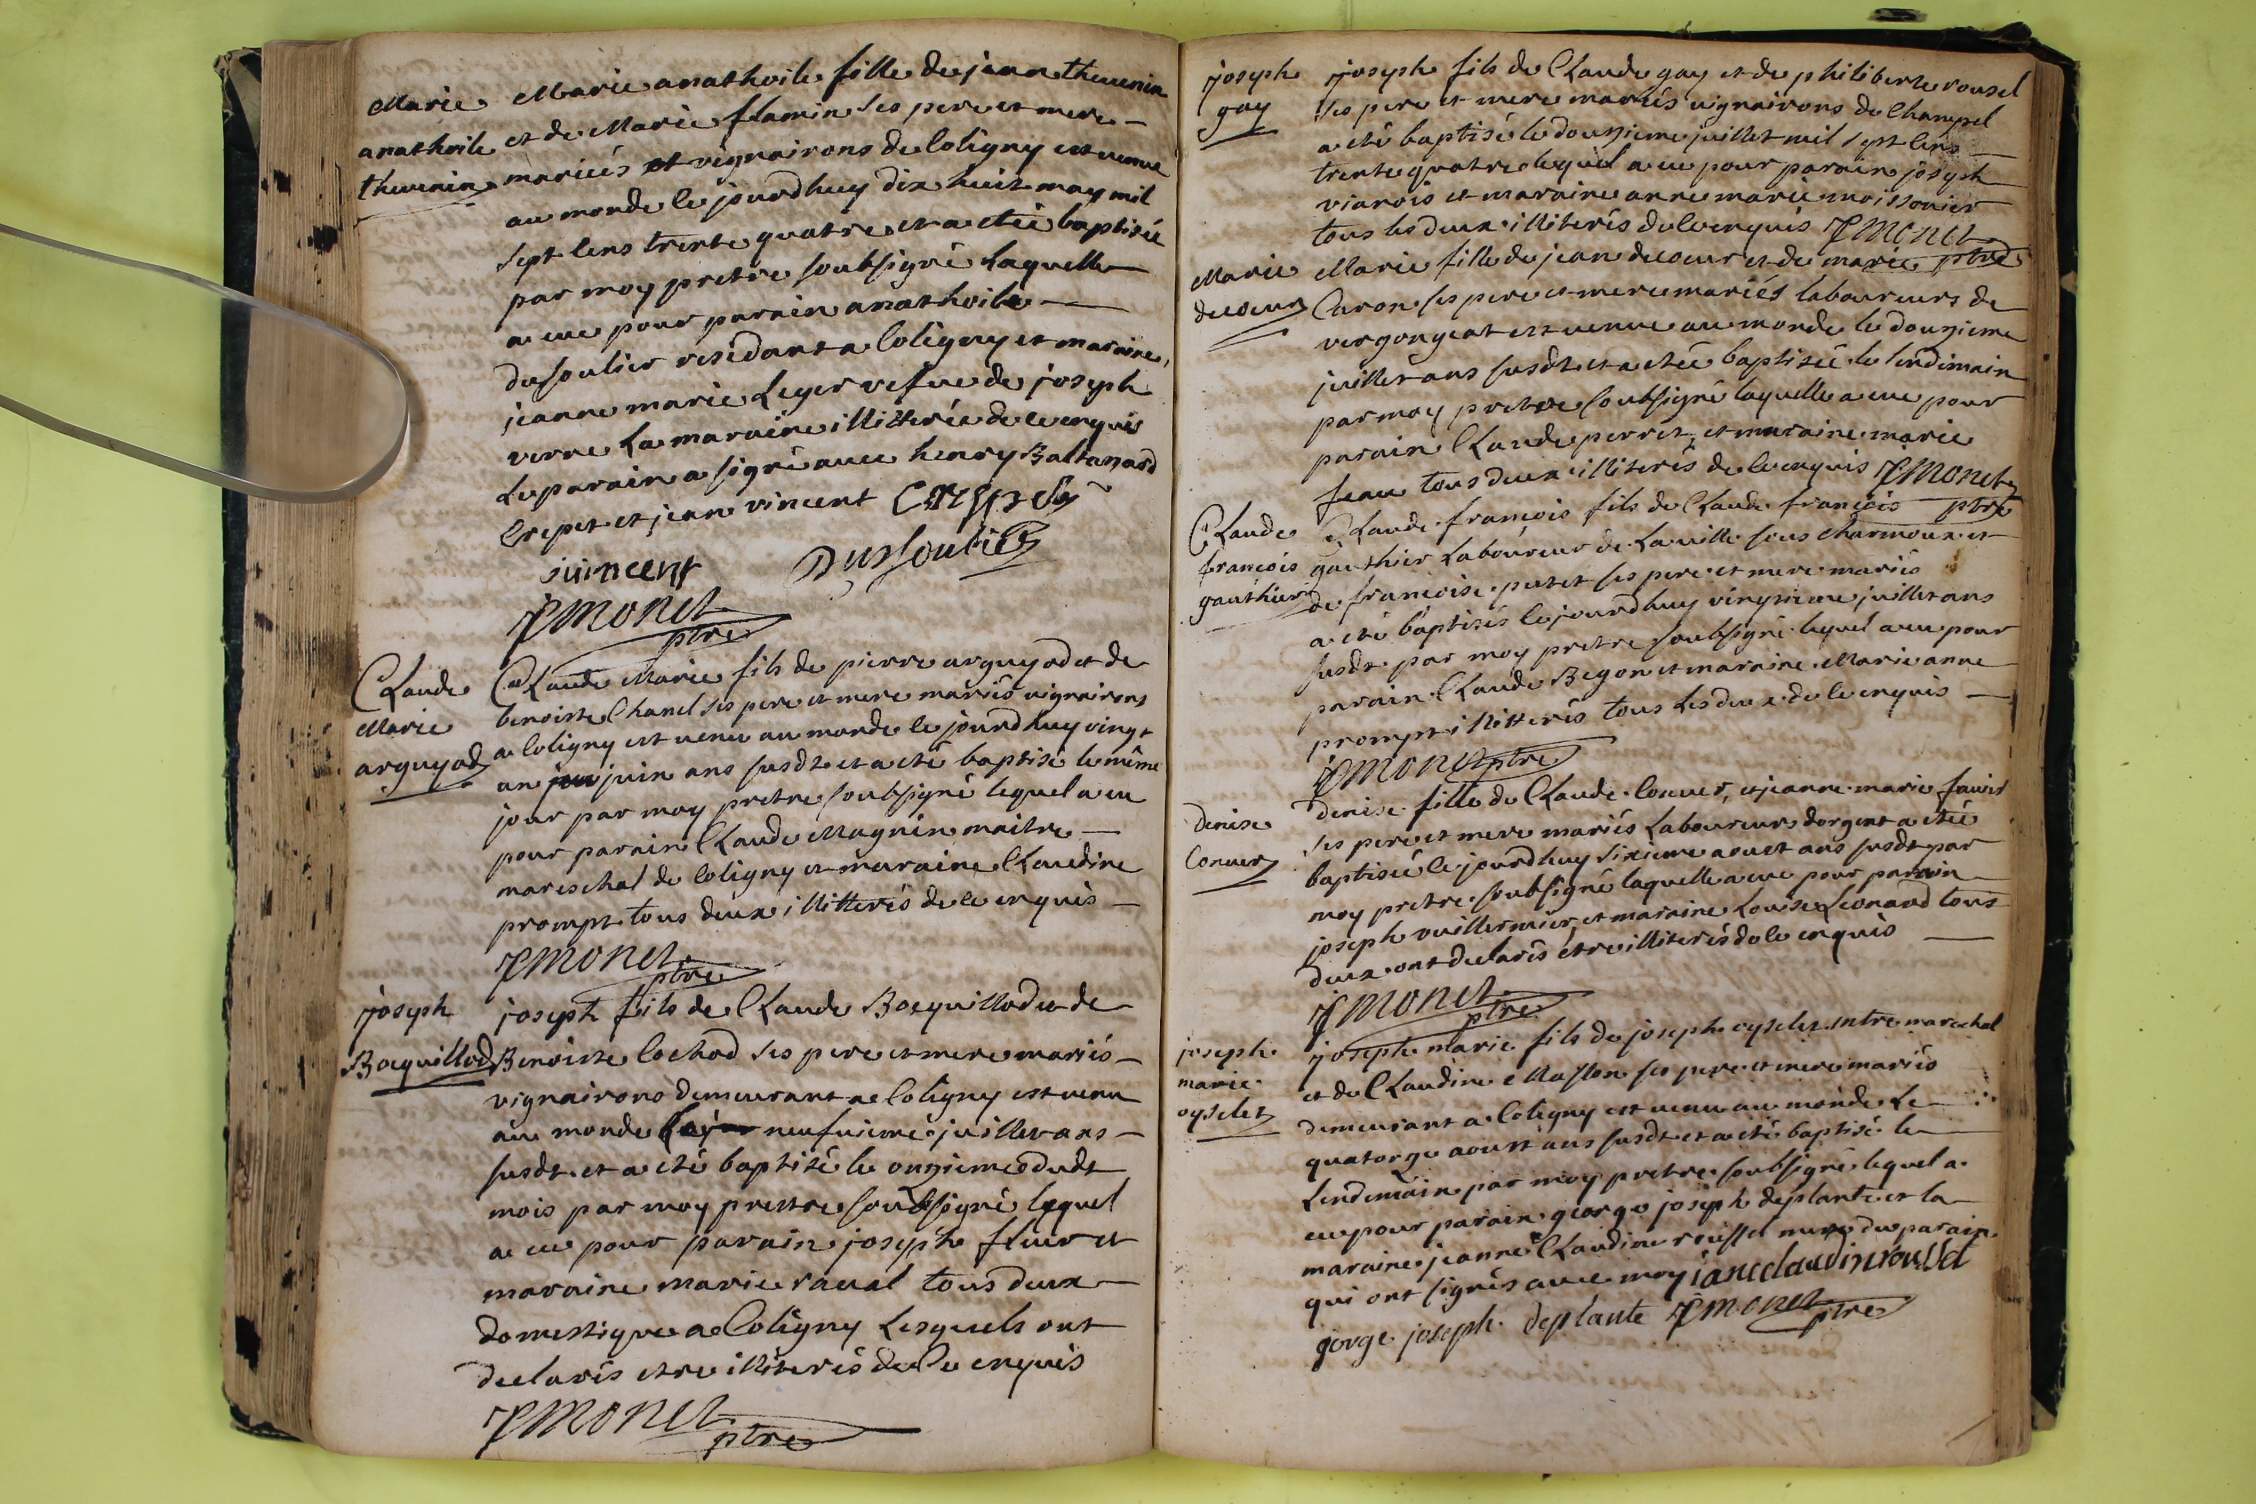 Marie
anathoile
thevenin
Marie anathoile fille de jean thevenin
et de Marie flamin ses pere et mere
mariés et vignairons de Coligny est venue
au monde le jourdhuy dix huit may mil
sept cens trente quatre et a etéé baptiséé
par moy pretre soubsigné Laquelle
a eue pour parain anathoile
dusoulier residant a Coligny et maraine
jeanne marie Leger vefue de joseph
verne La maraine illitterée de ce enquis
Le parain a signé avec henry Baltanard
Crepet et jean vincent Crespet
jvincent Dussoulier
JPMonet
ptre
Claude
Marie
arguyod
Claude Marie fils de pierre arguyod et de
benoiste Chanel ses pere et mere mariés vignairons
a Coligny est venu au monde le jourdhuy vingt
un juin ans susdt et a eté baptisé le même
jour par moy pretre soubsigné lequel a eu
pour parain Claude Magnin maitre
mareschal de Coligny et maraine Claudine
prompt tous deux illitterés de ce enquis
JPMonet
ptre
joseph
Bocquillod
joseph fils de Claude Bocquillod et de
Benoiste Cochod ses pere et mere mariés
vignairons demeurant a Coligny est venu
au monde neufuieme juillet ans
susdt et a eté baptisé le onzieme dudt
mois par moy prettre soubsigné lequel
a eu pour parain joseph fleur et
maraine marie raval tous deux
domestique a Coligny Lesquels ont
declarés etre illiterés de Ce enquis
JPMonet
ptre
joseph
gay
joseph fils de Claude gay et de philiberte rousel
ses pere et mere mariés vignairons de Champel
a eté baptisé le douzieme juillet mil sept cens
trente quatre lequel a eu pour parain joseph
viarois et maraine anne marie moissonier
tous les deux illiterés de ce enquis JPMonet
ptre
Marie
decoeur
Marie fille de jean decoeur et de marie
Caron ses pere et mere mariés laboureurs de
vergongeat est venue au monde le douzieme
juillet ans susdt et a etéé baptiséé le lendemain
par moy pretre soubsigné laquelle a eue pour
parain Claude perret et maraine marie
feau tous deux illiterés de ce enquis JPMonet
ptre
Claude
francois
gauthier
Claude francois fils de Claude francois
gauthier Laboureur de La ville sous charmoux et
de francoise putet ses pere et mere mariés
a eté baptisés le jourdhuy vingtieme juillet ans
susdt par moy pretre soubsigné lequel a eu pour
parain Claude Begon et maraine Marie anne
prompt illitterés tous Les deux de ce enquis
JPMonet ptre
denise
Convers
denise fille de Claude Convers, et jeanne marie favier
ses pere et mere mariés Laboureurs dorgent a etéé
baptiséé le jourdhuy sixieme aoust ans susdt par
moy pretre soubsigné laquelle a eue pour parain
joseph vuillermier, et maraine Louise Leonard tous
deux ont declarés étre illiterés de ce enquis
JPMonet
ptre
joseph
marie
oyselet
joseph marie fils de joseph oyselet mtre marechal
et de Claudine ses pere et mere mariés
demeurant a Coligny est venu au monde Le
quatorze aoust ans susdt et a eté baptisé le
Lendemain par moy pretre soubsigné lequel a
eu pour parain george joseph deplante et la
maraine jeanne Claudine rousset mere du parain
qui ont signés avec moy janeclaudinrousset
gorge joseph deplante JPMonet
ptre